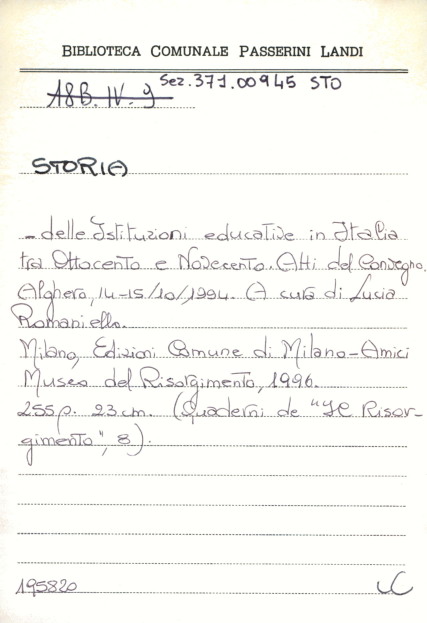 BIBLIOTECA COMUNALE PASSERINI LANDI
18B. IV. 9 Sez. 371.00945 STO
STORIA
- delle Istituzioni educative in Italia
tra Ottocento e Novecento. Atti del Convegno.
Alghero, 14-15/10/1994. A cura di Lucia
Romaniello.
Milano, Edizioni Comune di Milano-Amici
Museo del Risorgimento, 1996.
255p. 23 cm. (Quaderni de "Il Risor-
gimento", 8).
195820